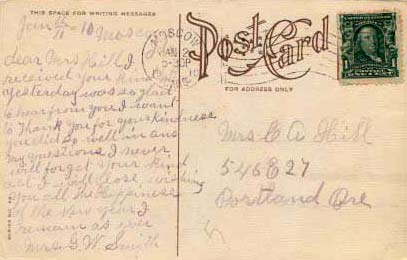 THIS SPACE FOR WRITING MESSAGES
Post Card
FOR ADDRESS ONLY
Jan 11 - 10 Moscow
Dear Mrs Hill I
received your kind
yesterday was so glad
to hear from you I want
to Thank you for your kindness
you did so well in ans
my questions I never
will forget your kind
act I will close wishing
you all the Happiness
of the New year I
remain as ever
Mrs. G. W. Smith
MOSCOW
5-30P
1
1
Mrs C A Hill
546 E 27
Portland Ore